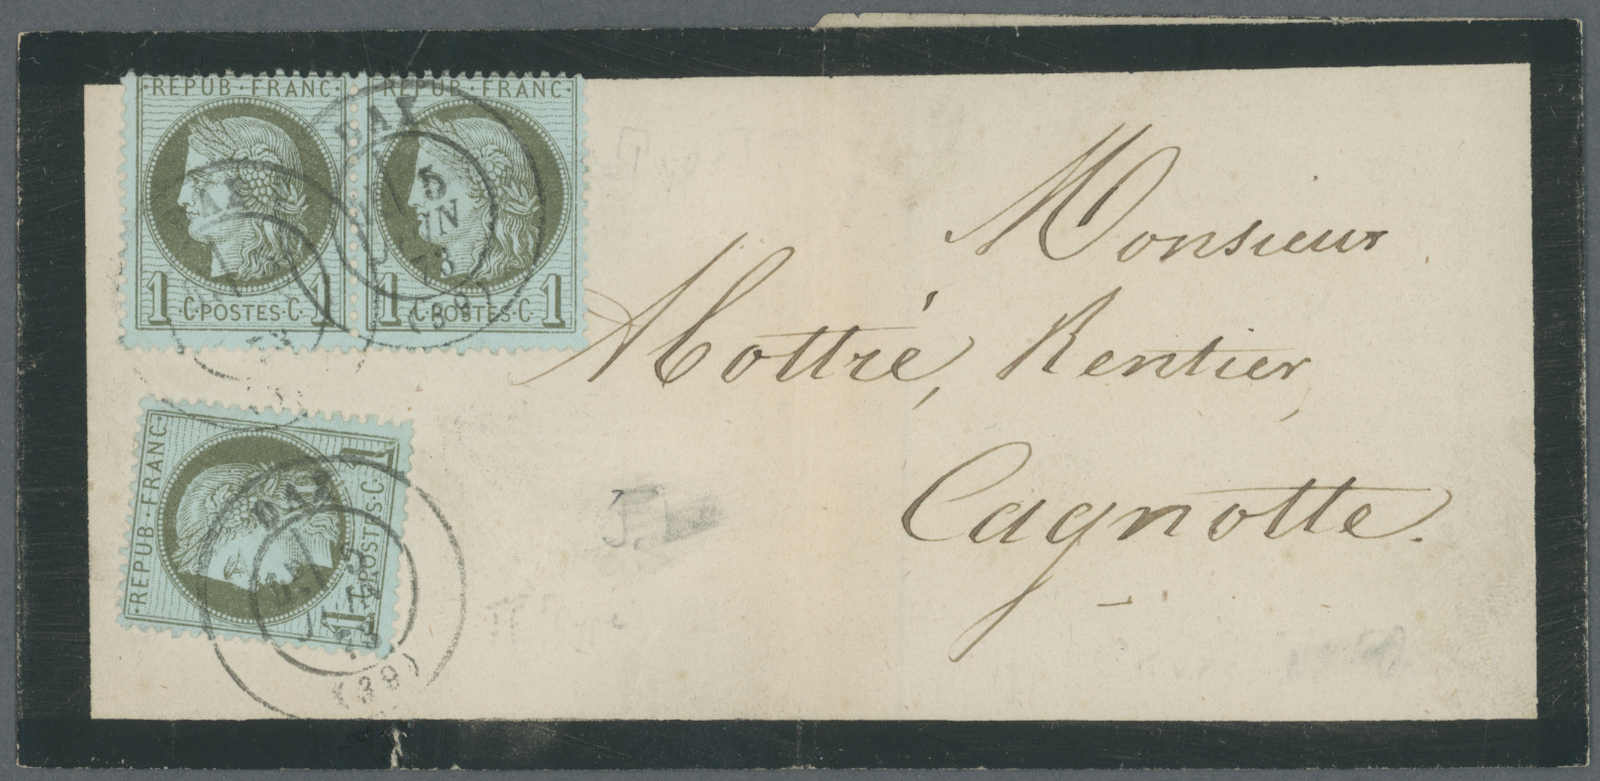 REPUB·FRANC·
1 ·C·POSTES·C· 1
REPUB·FRANC·
1 ·C·POSTES·C· 1
DAX
5
(39)
REPUB·FRANC·
1 ·C·POSTES·C· 1
DAX
(39)
Monsieur
Mottré, Rentier,
Cagnotte.